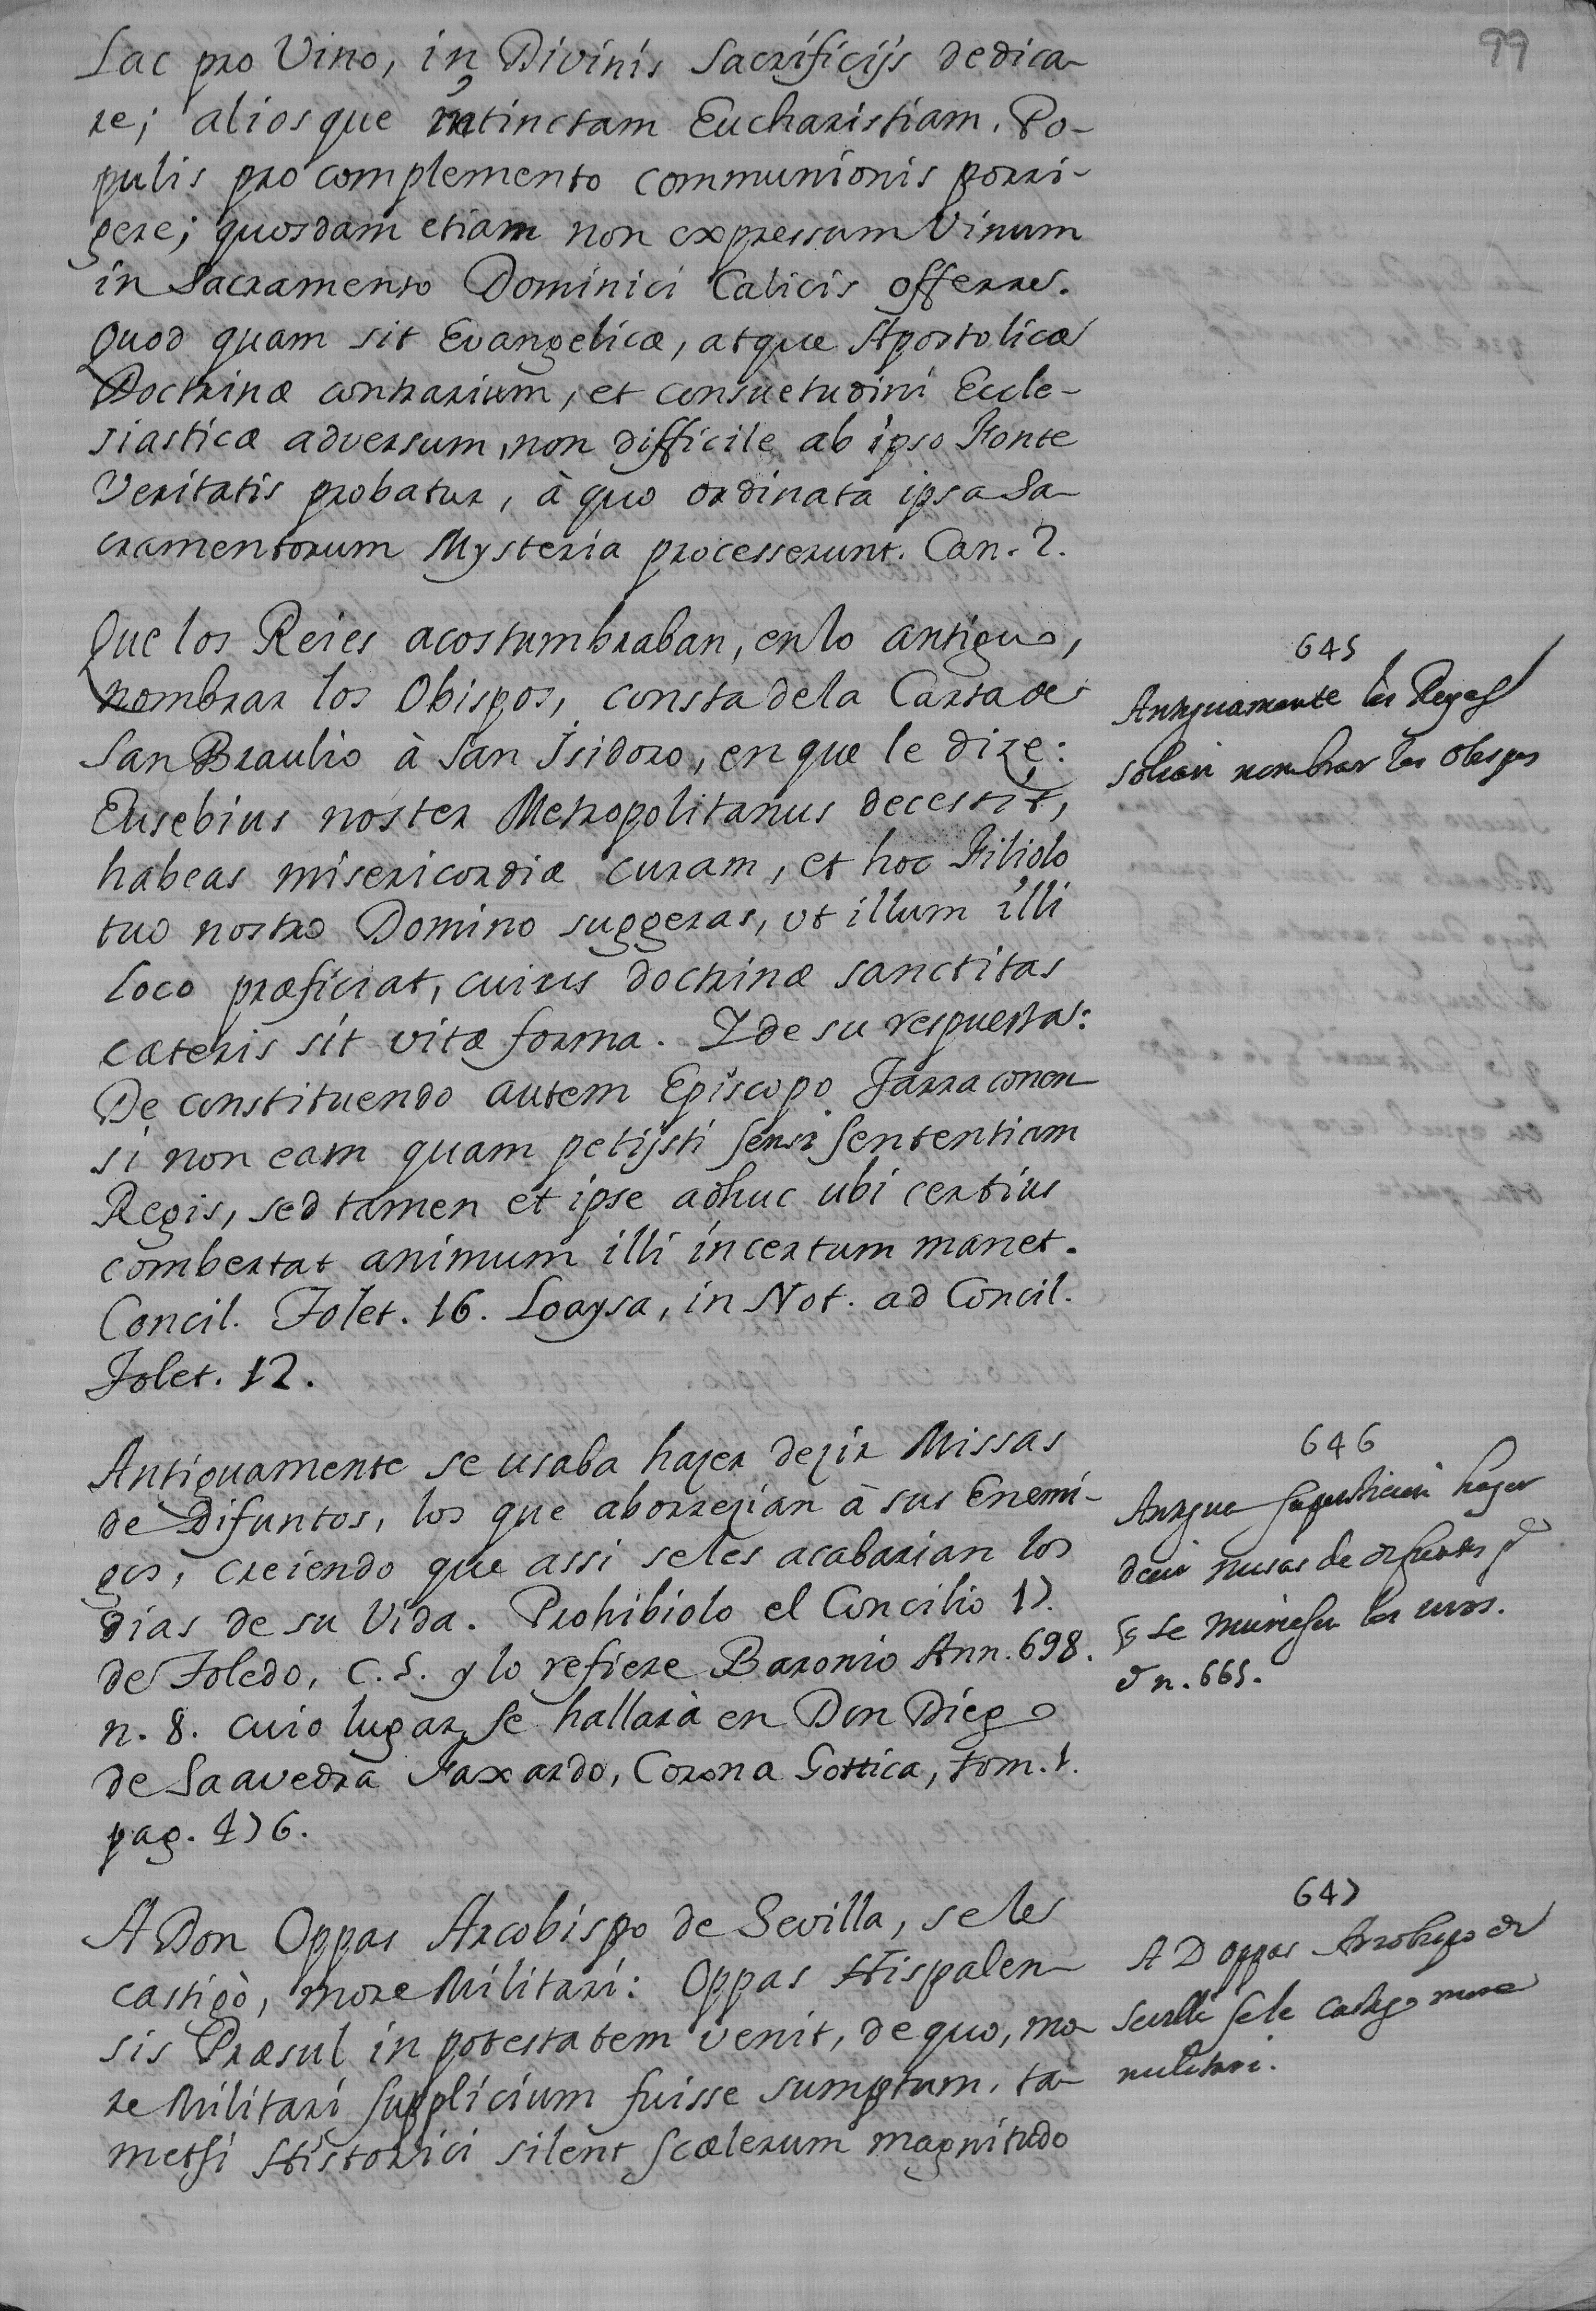 99
Lac pro Vino, in Divinis Sacrificijs dedica-
re; aliosque intinctam Eucharistiam. Po-
pulis pro complemento communionis porri-
gere; quosdam etiam non expressum Vinum
in Sacramento Dominici Calicis offerre.
Quod quam sit Evangelicæ, atque Apostolicæ
Doctrinæ contrarium, et consuetudini Eccle-
siasticæ adversum, non difficile ab ipso Fonte
Veritatis probatur, à quo ordinata ipsa Sa-
cramentorum Mysteria processerunt. Can. 2.
Que los Reies acostumbraban, en lo antiguo,
nombrar los Obispos, consta de la Carta de
San Braulio à San Isidoro, en que le dize:
Eusebius noster Metropolitanus decessit,
habeas misericordiæ curam, et hoc Filiolo
tuo nostro Domino suggeras, ut illum illi
loco præficiat, cuius doctrinæ sanctitas
cæteris sit vitæ forma. I de su respuesta:
De constituendo autem Episcopo Tarraconen-
si non eam quam petijsti sensi sententiam
Regis, sed tamen et ipse adhuc ubi certius
combertat animum illi incertum manet.
Concil. Tolet. 16. Loaysa, in Not. ad Concil.
Tolet. 12.
645
Antiguamente los Reyes
solian nombrar los obispos
Antiguamente se usaba hazer dezir Missas
de Difuntos, los que aborrezian à sus Enemi-
gos, creiendo que assi seles acabarian los
dias de su Vida. Prohibiolo el Concilio 17.
de Toledo, C. 5. y lo refiere Baronio Ann. 698.
n. 8. cuio lugar se hallarà en Don Diego
de Saavedra Faxardo, Corona Gottica, tom. 1.
pag. 476.
646
Antigua supersticion hazer
decir missas de difuntos pa
q se muriesen los vivos.
n. 665.
A Don Oppas Arcobispo de Sevilla, se les
castigò, more Militari: Oppas Hispalen-
sis Præsul in potestatem venit, de quo, mo-
re Militari supplicium fuisse sumptum, ta-
metsi Historici silent scælerum magnitudo
647
A D Oppas Arzobispo de
Sevilla se le castigo more
militari.